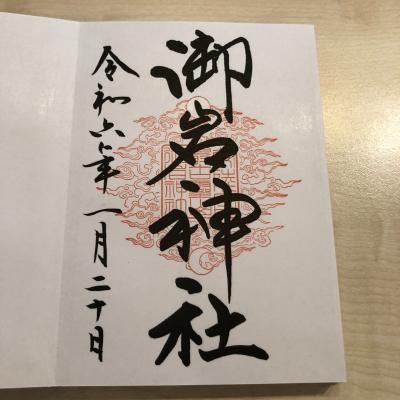 御岩神社
令和六年一月二十日